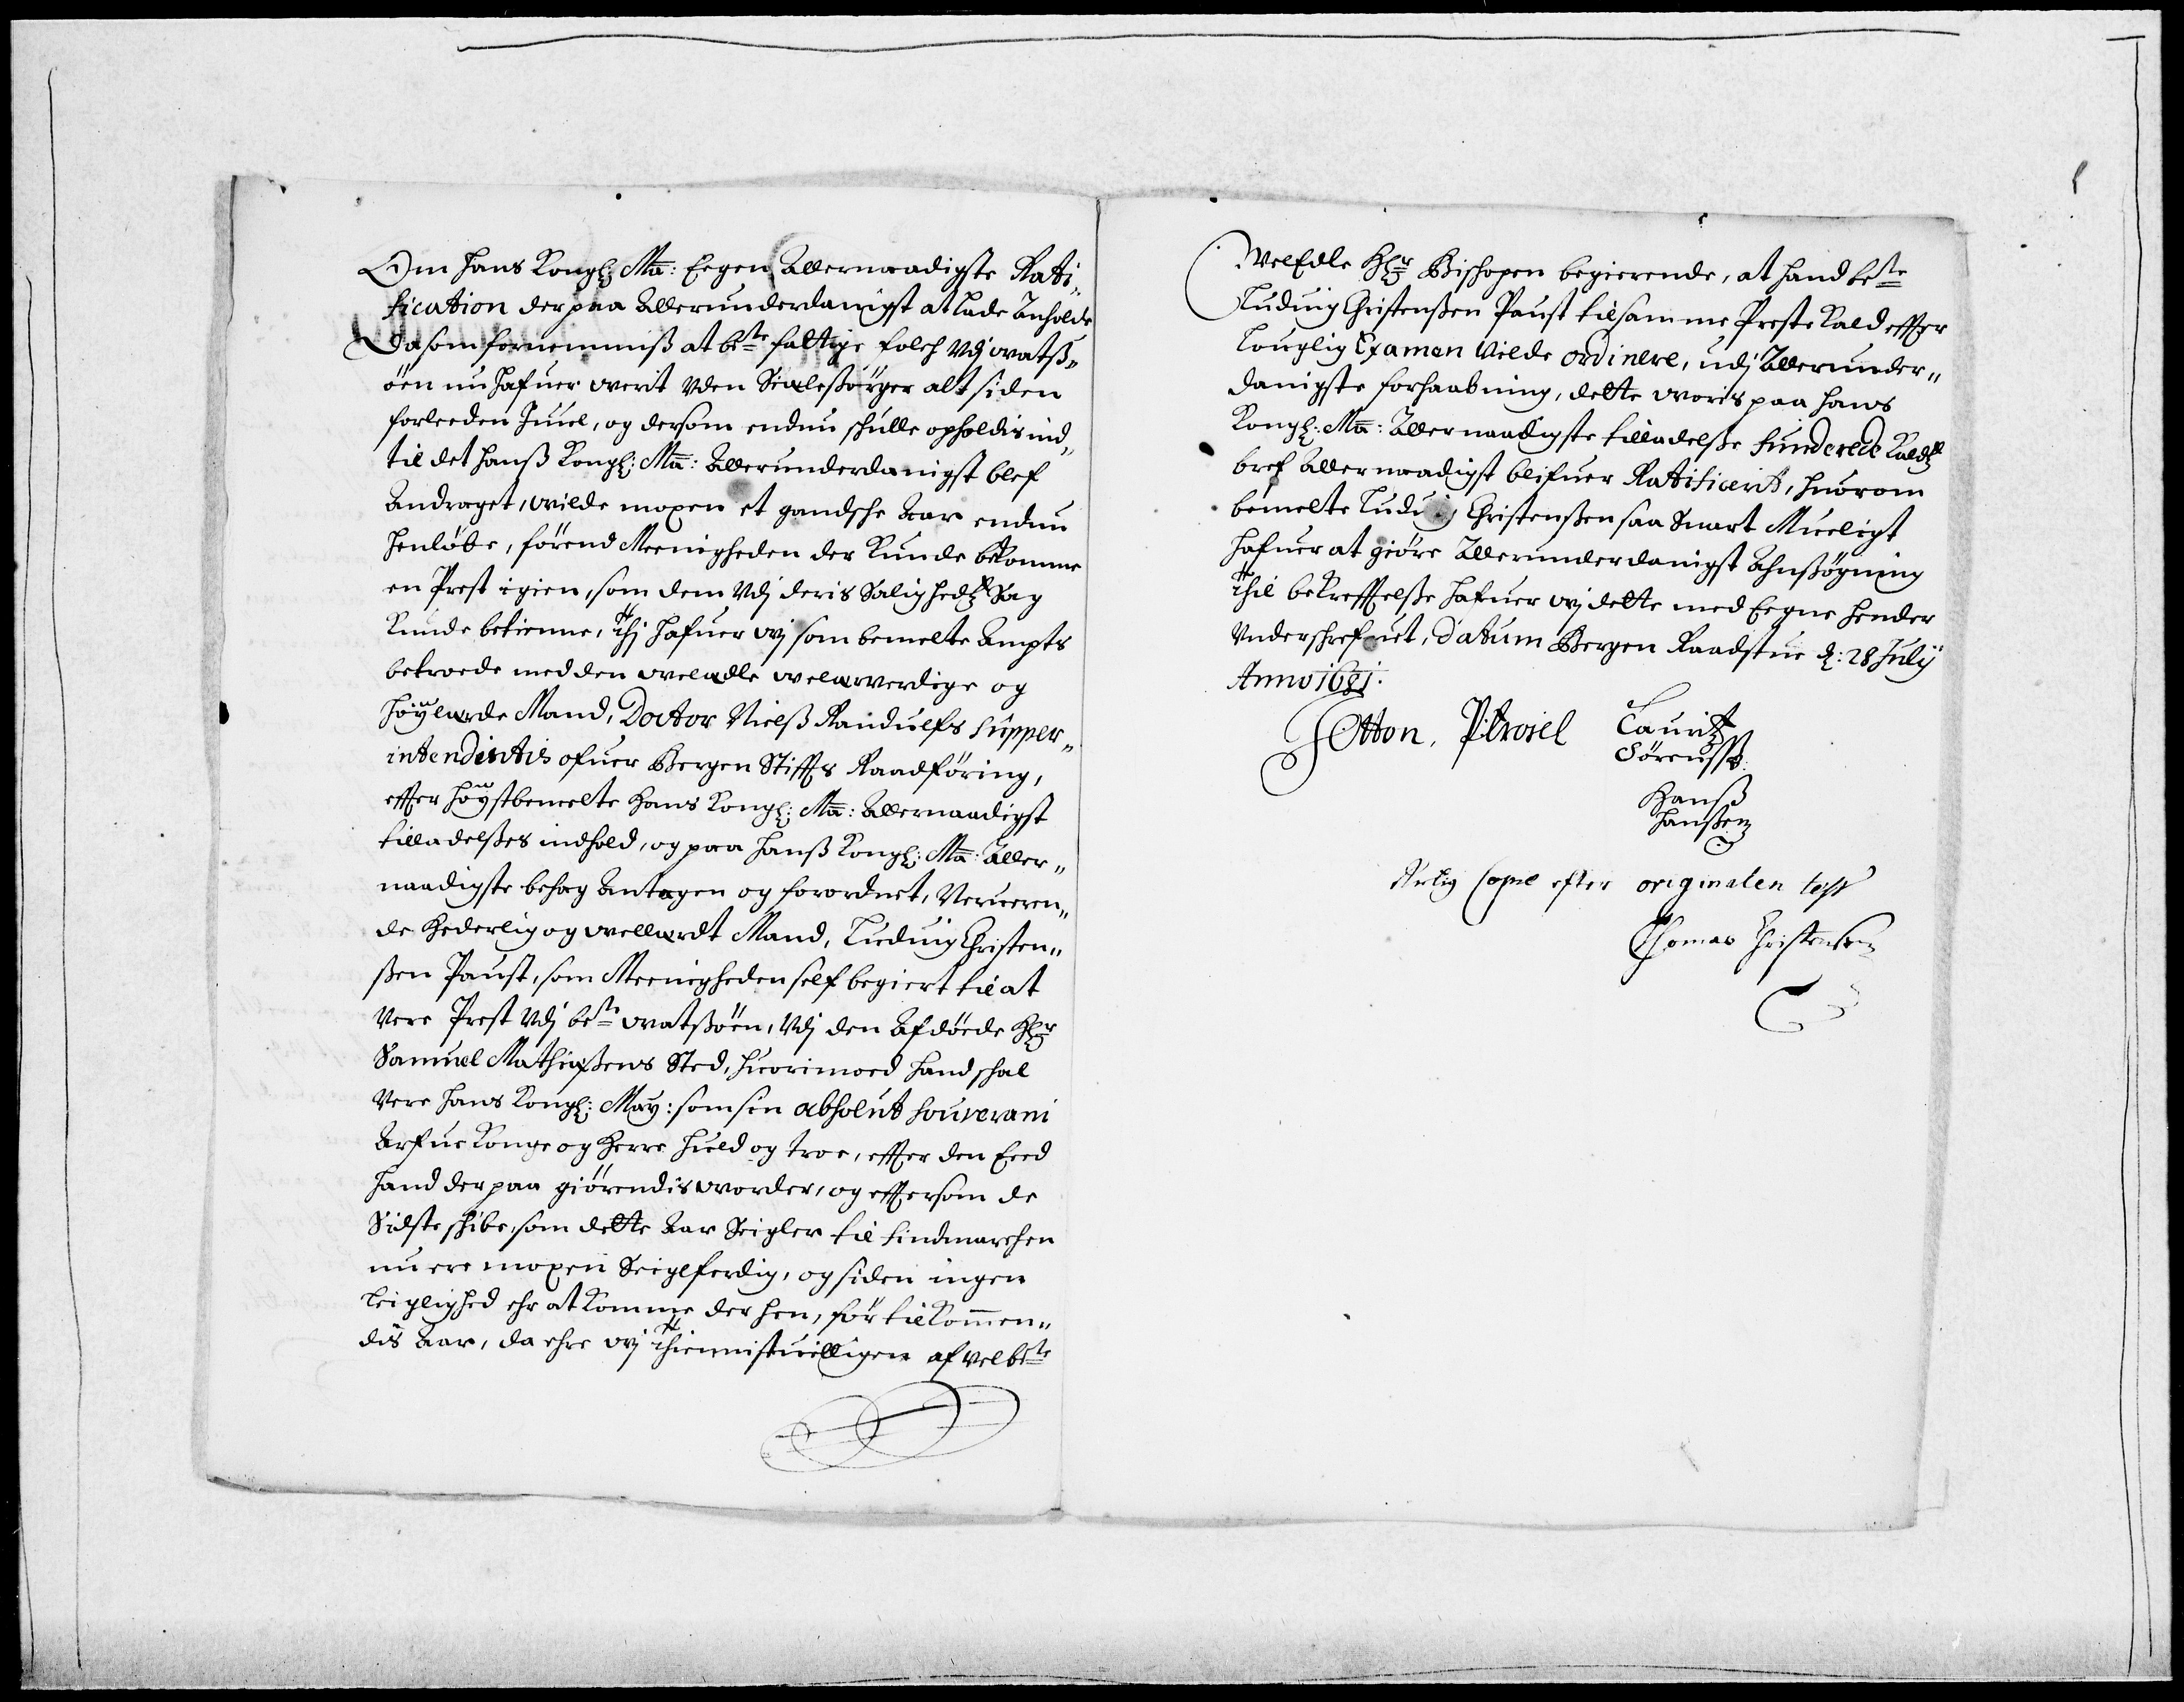 Om hans Kongl: Ma: Eegen Allernaadigste Rati„
fication der paa Allerunderdanigst at lade Anholde
Da som fornemmis at bete fattige folch Udj watß„
öen nu hafuer werit uden Sieleßörger alt siden
forleeden Juul, og dersom endnu schulle opholdis ind„
til det hanß Kongl: Ma: Allerunderdanigst blef
Andraget, wilde moxen et gandsche Aar endnu
henlöbe, förend Meenigheden der kunde bekomme
en Prest igien, som dem Udj deris Salighedtz Sag
kunde betienne, Thj hafuer wj som bemelte Ampts
betroede med den weledle welerwerdige og
höylerde Mand, Doctor Nielß Randulfs Supper„
intendentis ofuer Bergen Stiffts Raadföring,
effter höystbemelte Hans Kongl: Ma: Allernaadigst
tilladelßes indhold, og paa Hanß Kongl: Ma: Aller„
naadigste behag Antagen og forordnet, Neruæren„
de Hederlig og wellerdt Mand, Ludvig Christen„
ßen Paust, som Meenigheden self begiert til at
Vere Prest Udj bete watßöen, Udj den Afdöede Hr
Samuel Mathiaßens Sted, huorimoed hand schal
Vere Hans Kongl: May: som sin absolut souverani
Arfue Konge og Herre huld og troe, effter den Eed
hand der paa giörendis worder, og effersom de
Sidste schibe, som dette Aar Seigler til Findmarchen
nu ere moxen Seiglferdig, og siden ingen
leiglighed ehr at komme der hen, för tilkommen„
dis Aar, da ehre wj Thiennistvilligen af Velbete
WelEdle Hr Bischopen begierende, at hand bete
Ludvig Christenßen Paust til samme Preste kald effter
Louglig Examen Vilde ordinere, udj Allerunder„
danigste forhaabning, dette woris paa Hans
Kongl: Ma: Allernaadigste tilladelße funderede Kaldtz
bref Allernaadigst blifuer Ratificerit, huorom
bemelte Ludvig Christenßen saa Snart Mueligt
hafuer at giöre Allerunderdanigst Ahnßögning
Thil bekrefftelße hafuer wj dette med Egne Hender
Underschrefuet, Datum Bergen Raadstue d: 28 Julij
Anno 1681.
JOtton. Lauritz
Sörenßß:
Hanß
Hanßen
Rictig Copie efter originalen test
Thomas Christensen